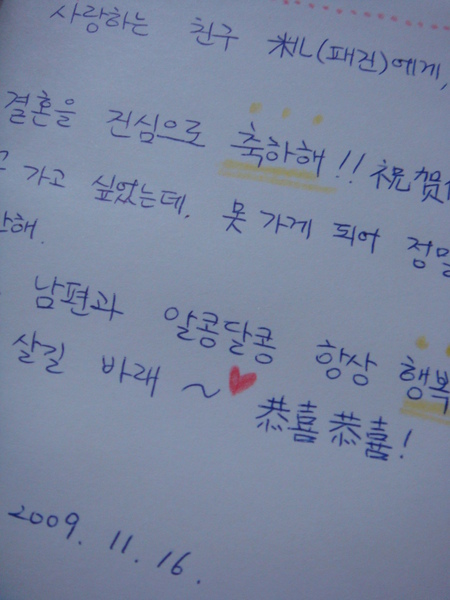 사랑하는 친구
결혼을 진심으로 축하해!!
가고 싶었는데, 못 가게 되어
남편과 알콩달콩 항상 행복
살길 바래~♥
恭喜 恭喜!
2009. 11. 16.